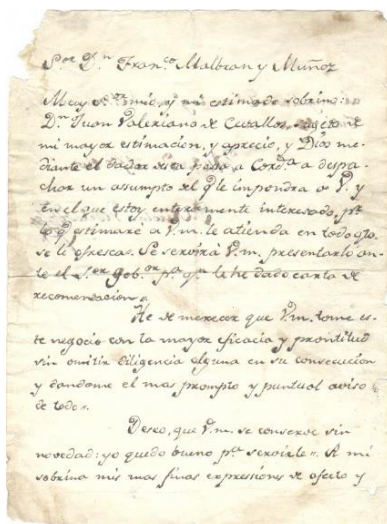 S.or D.n Fran.co Malbran y Muñoz
Muy S.or mio, y mi estimado sobrino:
D.n Juan Valeriano de Cevallos, sugeto de
mi mayor estimacion, y aprecio, y Dios me-
diante el dador de esta pasa a Cord.a a despa-
char un assumpto de q.e le impondra a V. y
en el que estoy enteramente interesado, p.r
lo q.e estimaré a V.m. le atienda en todo q.to
se le ofresca. Se servirá V.m. presentarlo an-
te el S.or Gob.or p.a q.n le he dado carta de
recomendacion.
He de merecer que V.m. tome es-
te negocio con la mayor eficacia y prontitud
sin omitir diligencia alguna en su consecucion
y dandome el mas prompto y puntual aviso
de todo.
Deseo, que V.m. se conserve sin
novedad: yo quedo bueno p.a servirle. A mi
sobrina mis mas finas expresiones de afecto y